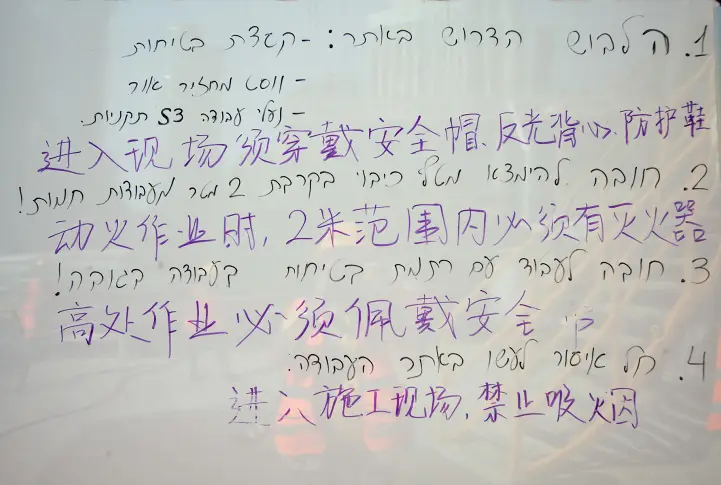 1. הלבוש הדרוש באתר: - קסדת בטיחות
- ווסט מחזיר אור
- נעלי עבודה S3 תקניות.
进入现场须穿戴安全帽、反光背心、防护鞋
2. חובה להימצא מטלי כיבוי בקרבת 2 מטר מעבודות חמות!
动火作业时，2米范围内必须有灭火器
3. חובה לעבוד עם רתמת בטיחות בעבודה בגובה!
高处作业必须佩戴安全
4. חל איסור לעשן באתר העבודה.
进入施工现场，禁止吸烟